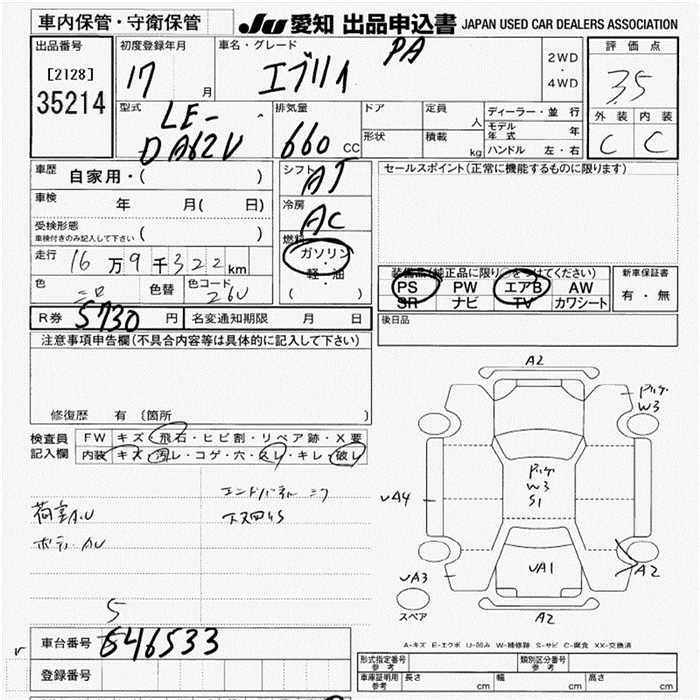 車内保管・守衛保管
JU 愛知 出品申込書 JAPAN USED CAR DEALERS ASSOCIATION
出品番号
[2128]
35214
初度登録年月
17 月
車名・グレード
エブリイ PA
2WD
・
4WD
評価点
3.5
外装 内装
C C
型式
LE-
DA62V
排気量
660 CC
ドア
形状
定員 人
積載 kg
ディーラー・並行
モデル年式 年
ハンドル 左・右
車歴
自家用・( )
車検
年 月( 日)
受検形態
車検付きのみ記入して下さい ( )
走行 16万9千322km
色 色替 色コード
26U
シフト
AT
冷房
AC
燃料
ガソリン
・
軽・油
( )
セールスポイント(正常に機能するものに限ります)
装備品(純正品に限り○をつけてください)
PS PW エアB AW
SR ナビ TV カワシート
新車保証書
有・無
R券 5730 円 名変通知期限 月 日
後日品
注意事項申告欄(不具合内容等は具体的に記入して下さい)
修復歴 有 〔箇所 〕
検査員
記入欄
FW キズ・飛石・ヒビ割・リペア跡・X要
内装 キズ・汚レ・コゲ・穴・スレ・キレ・破レ
荷室A.U
ボディAU
A2
W3
W3
S1
UA4
UA1
UA3
A2
A2
スペア
A-キズ E-エクボ U-凹み W-補修跡 S-サビ C-腐食 XX-交換済
5
車台番号 646533
登録番号
形式指定番号
参考
類別区分番号
参考
車庫証明用
参考
長さ cm 幅 cm 高さ cm